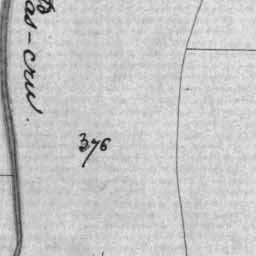 as-cru.
376